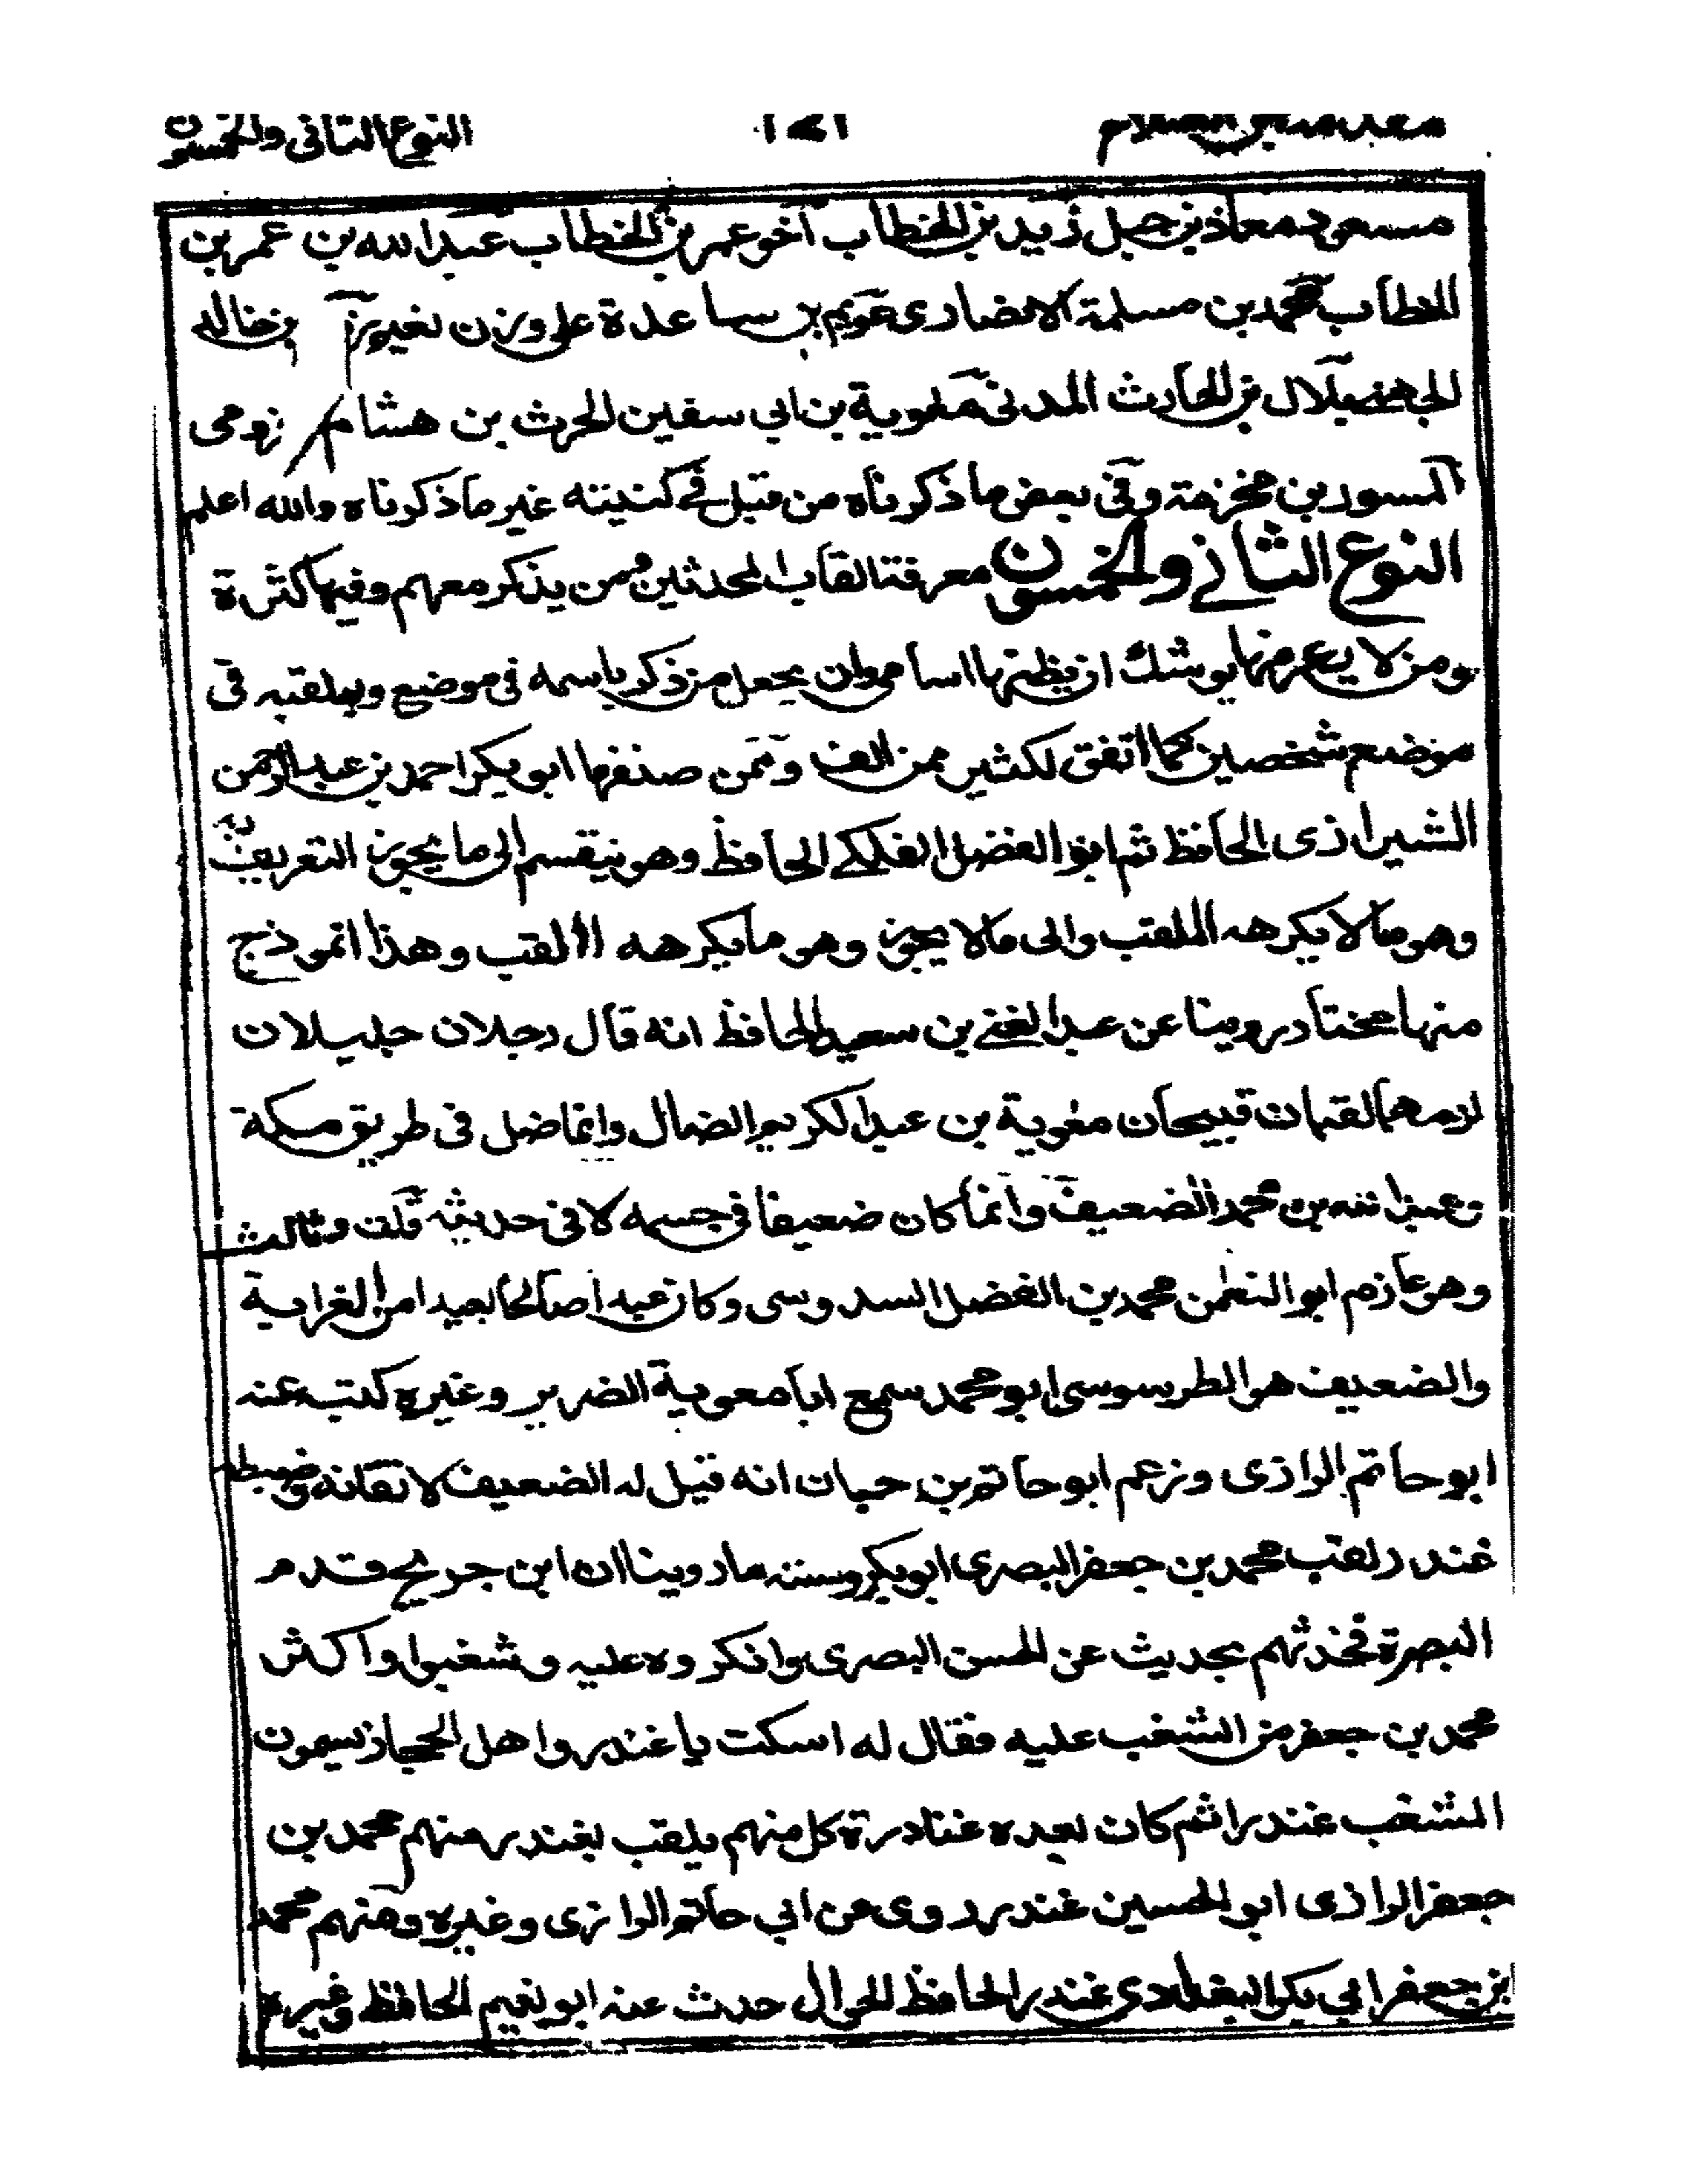 النوع الثانى والخمسون
مسعود معاذ بن جبل زيد بن الخطاب اخو عمر بن الخطاب عبد الله بن عمر بن
الخطاب محمد بن مسلمة الانصارى عويم بن ساعدة على وزن نعيم بن خالد
الجهنى بلال بن الحارث المدنى معوية بن ابي سفين الحرث بن هشام زومى
المسور بن مخرمة وفى بعض ما ذكرناه من قيل فى كنيته غير ما ذكرناه والله اعلم
النوع الثانى والخمسون معرفة القاب المحدثين ومن يذكر معهم وفيها كثرة
ومن لا يعرفها يوشك ان يظنها اسامى وان يجعل من ذكر باسمه فى موضع وبلقبه فى
موضع شخصين كما اتفق لكثير ممن الف وممن صنفها ابو بكر احمد بن عبد الرحمن
الشيرازى الحافظ ثم ابو الفضل الفلكى الحافظ وهو ينقسم الى ما يجوز التعريف به
وهو ما لا يكرهه الملقب والى ما لا يجوز وهو ما يكرهه الملقب وهذا انموذج
منها مختار روينا عن عبد الغنى بن سعيد الحافظ انه قال رجلان جليلان
لزمهما لقبان قبيحان معوية بن عبد الكريم الضال وانما ضل فى طريق مكة
وعبد الله بن محمد الضعيف وانما كان ضعيفا فى جسمه لا فى حديثه قلت وثالث
وهو عارم ابو النعمن محمد بن الفضل السدوسى وكان عبدا صالحا بعيدا من العرامة
والضعيف هو الطرسوسى ابو محمد سمع ابا معوية الضرير وغيره كتب عنه
ابو حاتم الرازى وزعم ابو حاتم بن حبان انه قيل له الضعيف لاتقانه وضبطه
غندر لقب محمد بن جعفر البصرى ابو بكر وسببه ما روينا ان ابن جريج قدم
البصرة فحدثهم بحديث عن الحسن البصرى وانكروه عليه وشغبوا واكثر
محمد بن جعفر من الشغب عليه فقال له اسكت يا غندر واهل الحجاز يسمون
المشغب غندرا ثم كان بعده غنادرة كل منهم يلقب بغندر منهم محمد بن
جعفر الرازى ابو الحسين غندر روى عن ابي حاتم الرازى وغيره ومنهم محمد
بن جعفر ابي بكر البغدادى غندر الحافظ الجوال حدث عنه ابو نعيم الحافظ وغيره